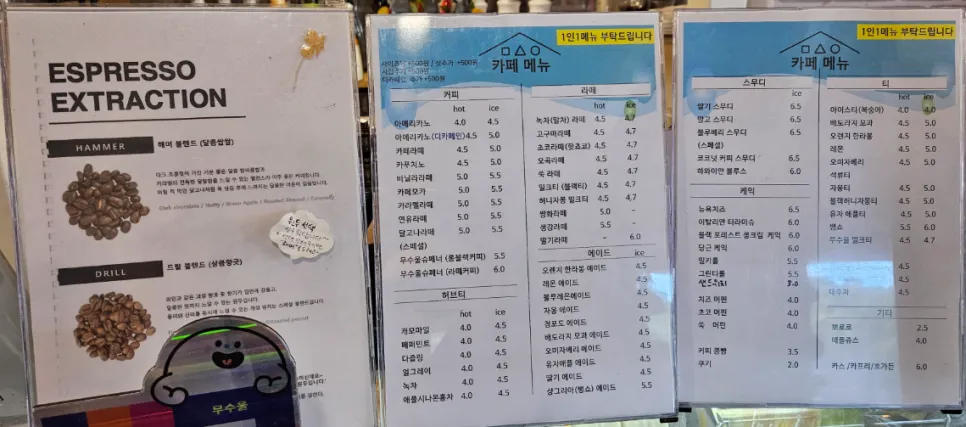 ESPRESSO
EXTRACTION
HAMMER 해머 블렌드 (달콤쌉쌀)
Dark chocolate / Nutty / Green Apple / Roasted Almond / Caramelly
원두 선택
DRILL 드릴 블렌드 (상큼향긋)
무수울
1인1메뉴 부탁드립니다
카페 메뉴
사이즈업 +500원 / 샷추가 +500원
시럽추가 +500원
디카페인 추가 +500원
커피
hot ice
아메리카노 4.0 4.5
아메리카노(디카페인) 4.5 5.0
카페라떼 4.5 5.0
카푸치노 4.5 5.0
바닐라라떼 5.0 5.5
카페모카 5.0 5.5
카라멜라떼 5.0 5.5
연유라떼 5.0 5.5
달고나라떼 5.0 5.5
(스페셜)
무수울슈페너 (롱블랙커피) 5.5
무수울슈페너 (라떼커피) 6.0
허브티
hot ice
캐모마일 4.0 4.5
페퍼민트 4.0 4.5
다즐링 4.0 4.5
얼그레이 4.0 4.5
녹차 4.0 4.5
애플시나몬홍차 4.0 4.5
라떼
hot ice
녹차(말차) 라떼 4.5 4.7
고구마라떼 4.5 4.7
초코라떼(핫쵸코) 4.5 4.7
오곡라떼 4.5 4.7
쑥 라떼 4.5 4.7
밀크티 (블랙티) 4.5 4.7
허니자몽 밀크티 4.5 4.7
쌍화라떼 5.0 -
생강라떼 5.0 -
딸기라떼 - 6.0
에이드
ice
오렌지 한라봉 에이드 4.5
레몬 에이드 4.5
블루레몬에이드 4.5
자몽 에이드 4.5
청포도 에이드 4.5
배도라지 모과 에이드 4.5
오미자베리 에이드 4.5
유자애플 에이드 4.5
딸기 에이드 4.5
샹그리아(뱅쇼) 에이드 5.5
1인1메뉴 부탁드립니다
카페 메뉴
스무디
ice
딸기 스무디 6.5
망고 스무디 6.5
블루베리 스무디 6.5
(스페셜)
코코넛 커피 스무디 6.5
하와이안 블루스 6.0
케익
뉴욕치즈 6.5
이탈리안 티라미슈 6.0
블랙 포레스트 롱크림 케익 6.0
당근 케익 6.0
밀키롤 5.5
그린티롤 5.5
치즈 머핀 4.0
초코 머핀 4.0
쑥 머핀 4.0
커피 콩빵 3.5
쿠키 2.0
티
hot ice
아이스티(복숭아) 4.0 4.0
배도라지 모과 4.5 5.0
오렌지 한라봉 4.5 5.0
레몬 4.5 5.0
오미자베리 4.5 5.0
석류티
자몽티 4.5 5.0
블랙허니자몽티 4.5 5.0
유자 애플티 4.5 5.0
뱅쇼 5.5 6.0
무수울 밀크티 4.5 4.7
4.5
4.5
대추차 4.5
기타
뽀로로 2.5
애플쥬스 4.0
카스 /카프리/호가든 6.0